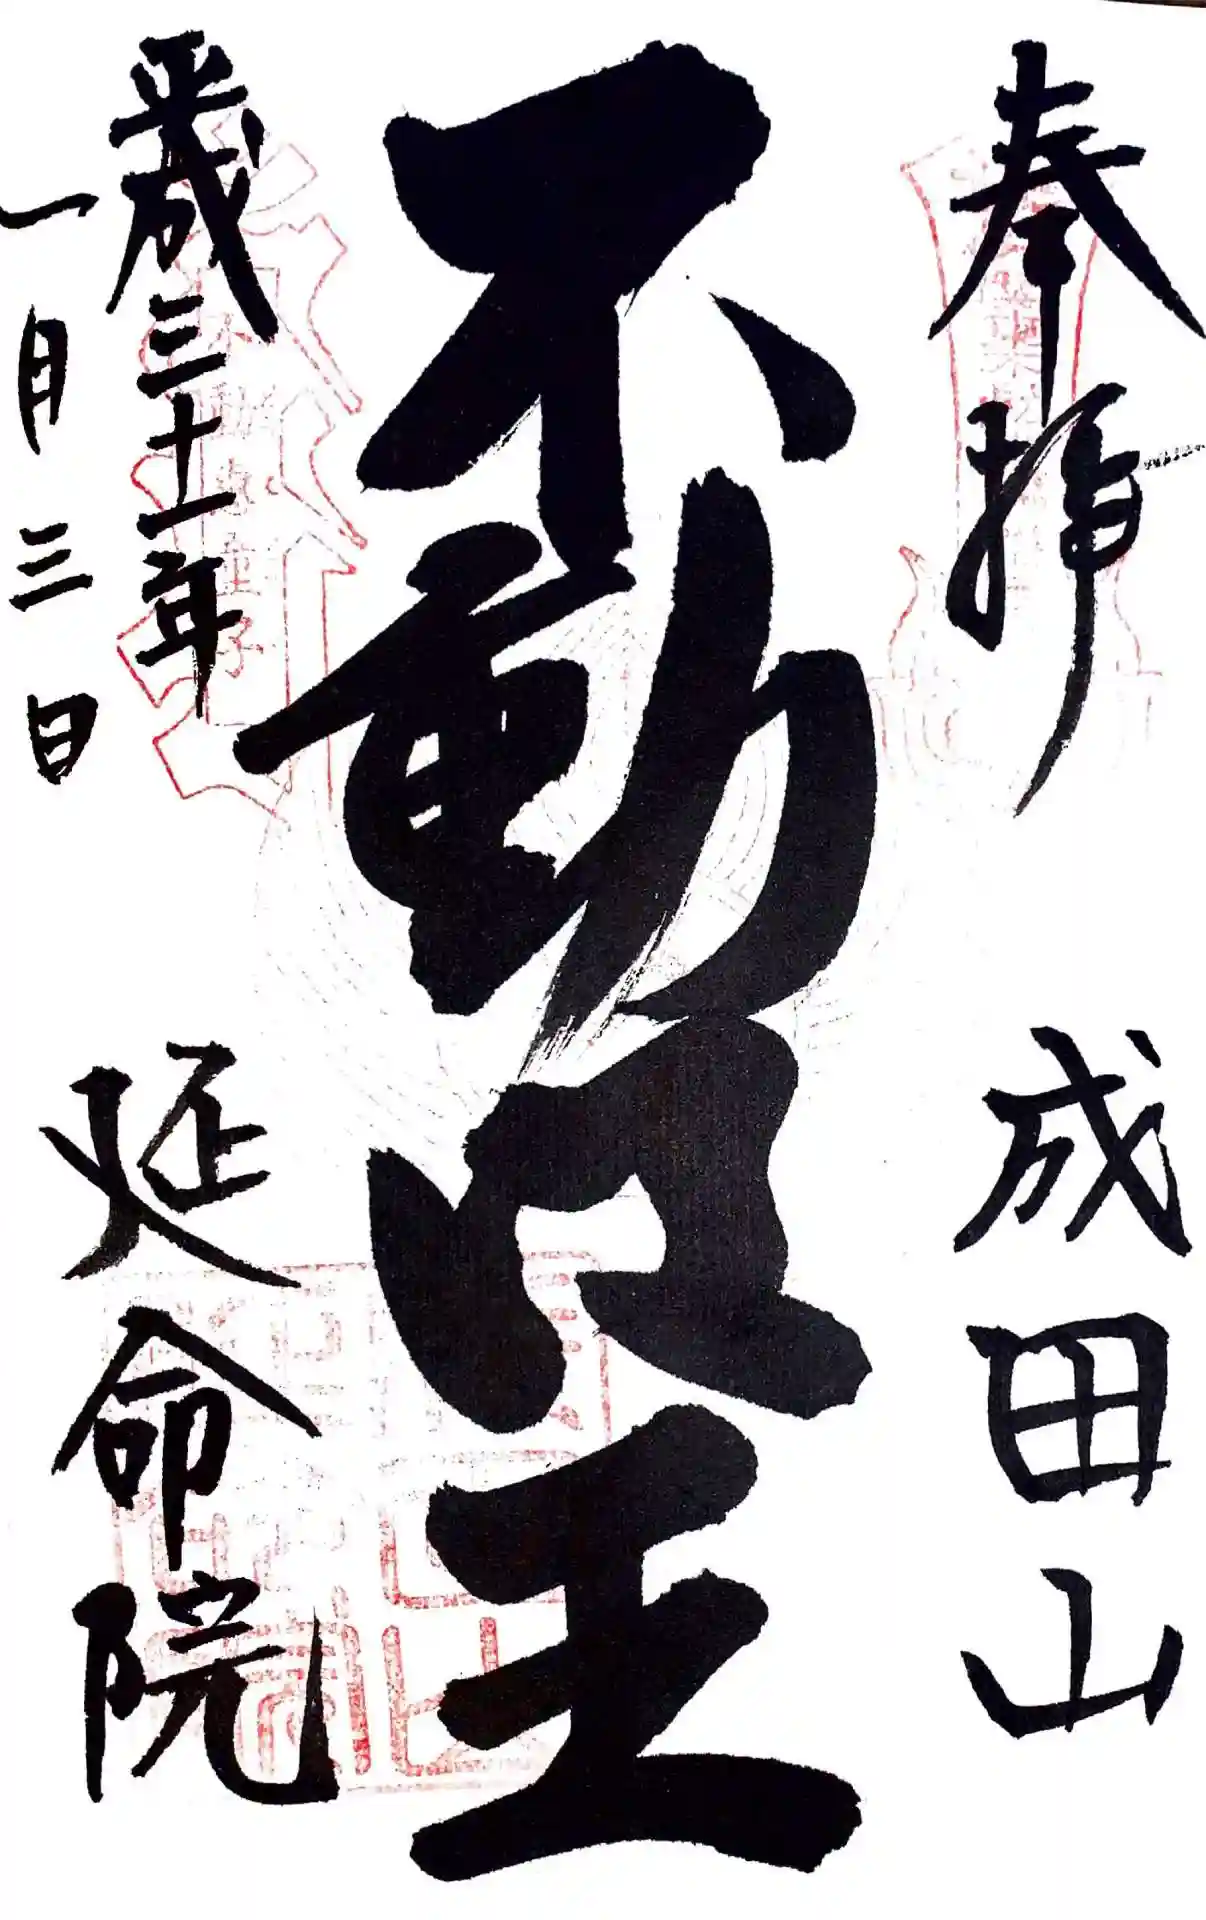 奉拝 成田山
不動明王
平成三十一年
一月三日
延命院